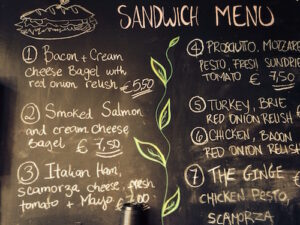 SANDWICH MENU
① Bacon + Cream
cheese Bagel with
red onion relish €5,50
② Smoked Salmon
and cream cheese
Bagel € 7,50
③ Italian Ham,
scamorza cheese, fresh
tomato + Mayo €7,00
④ PROSCIUTTO, MOZZARE
PESTO, FRESH SUNDRIE
TOMATO € 7,50
⑤ TURKEY, BRIE
RED ONION RELISH €
⑥ CHICKEN, BACON
RED ONION RELISH
⑦ THE GINGE
CHICKEN PESTO,
SCAMORZA